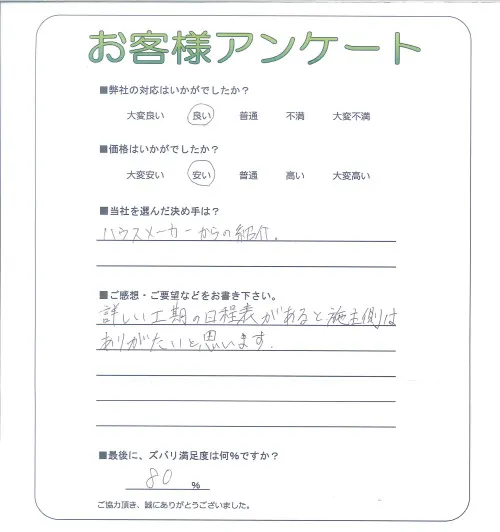 お客様アンケート
■弊社の対応はいかがでしたか？
大変良い 良い 普通 不満 大変不満
■価格はいかがでしたか？
大変安い 安い 普通 高い 大変高い
■当社を選んだ決め手は？
ハウスメーカーからの紹介。
■ご感想・ご要望などをお書き下さい。
詳しい工期の日程表があると施主側は
ありがたいと思います。
■最後に、ズバリ満足度は何％ですか？
80 ％
ご協力頂き、誠にありがとうございました。